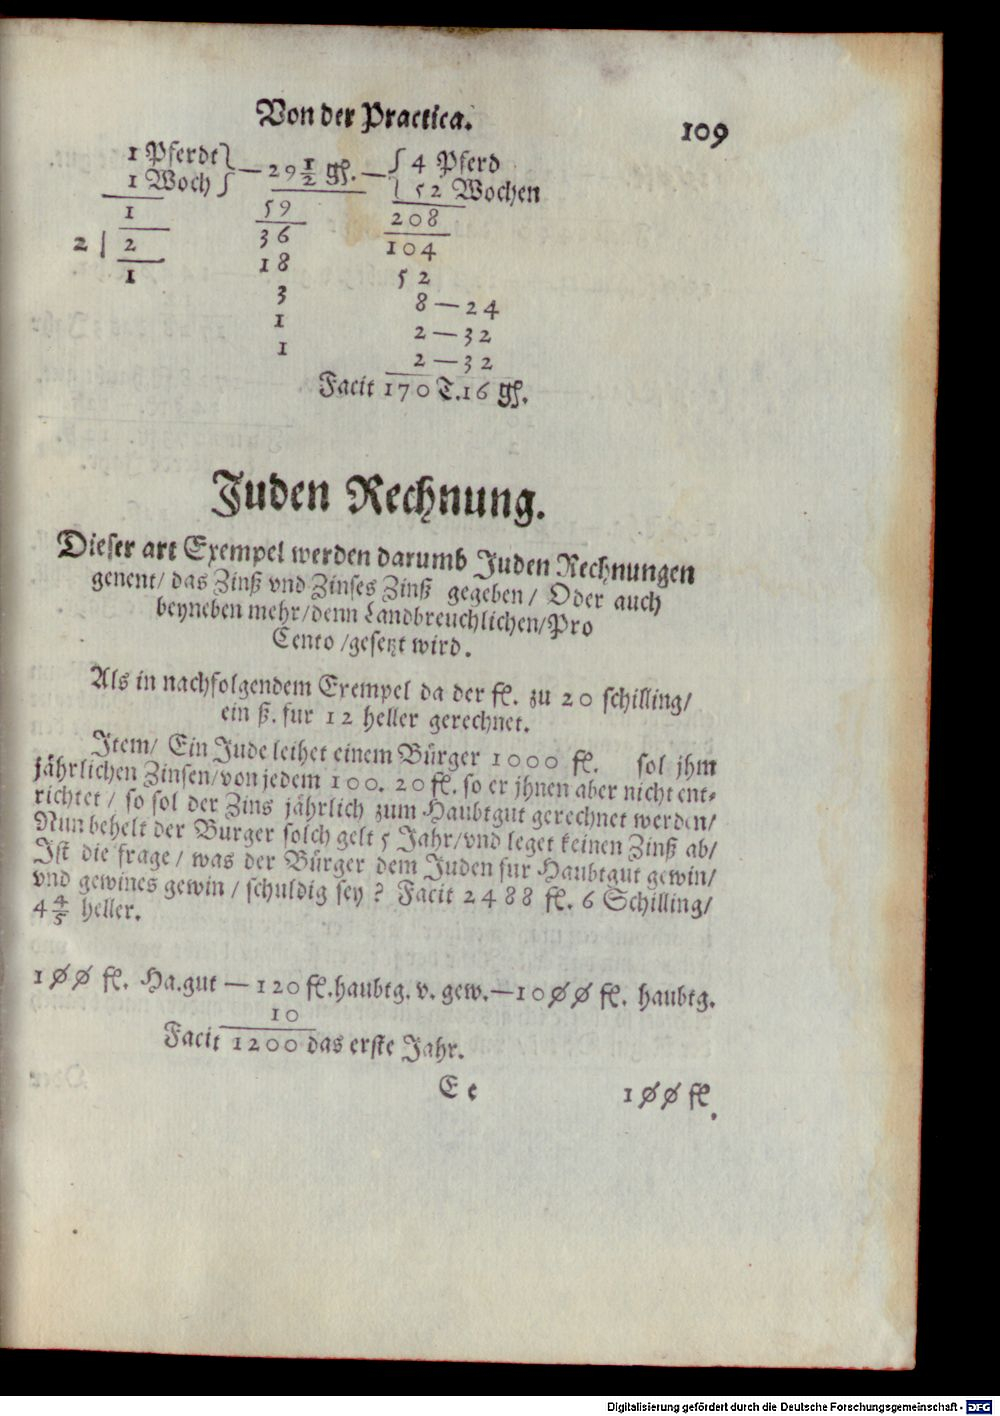 Von der Practica. 109
1 Pferdt } — 29 1/2 gſ. — { 4 Pferd
1 Woch } { 52 Wochen
1 59 208
2 | 2 36 104
1 18 52
3 8 — 24
1 2 — 32
1 2 — 32
Facit 170 T. 16 gſ.
Juden Rechnung.
Dieſer art Exempel werden darumb Juden Rechnungen
genent/ das Zinß vnd Zinſes Zinß gegeben/ Oder auch
beyneben mehr/denn Landbreuchlichen/Pro
Cento/geſetzt wird.
Als in nachfolgendem Exempel da der fl. zu 20 ſchilling/
ein ß. fur 12 heller gerechnet.
Item/ Ein Jude leihet einem Bürger 1000 fl. ſol jhm
jährlichen Zinſen/von jedem 100. 20 fl. ſo er jhnen aber nicht ent⸗
richtet/ ſo ſol der Zins jährlich zum Haubtgut gerechnet werden/
Nun behelt der Burger ſolch gelt 5 Jahr/vnd leget keinen Zinß ab/
Iſt die frage/ was der Bürger dem Juden fur Haubtgut gewin/
vnd gewines gewin/ ſchuldig ſey? Facit 2488 fl. 6 Schilling/
4 4/5 heller.
100 fl. Ha.gut — 120 fl.haubtg. v. gew. — 1000 fl. haubtg.
10
Facit 1200 das erſte Jahr.
E e 100 fl.
Digitalisierung gefördert durch die Deutsche Forschungsgemeinschaft - DFG